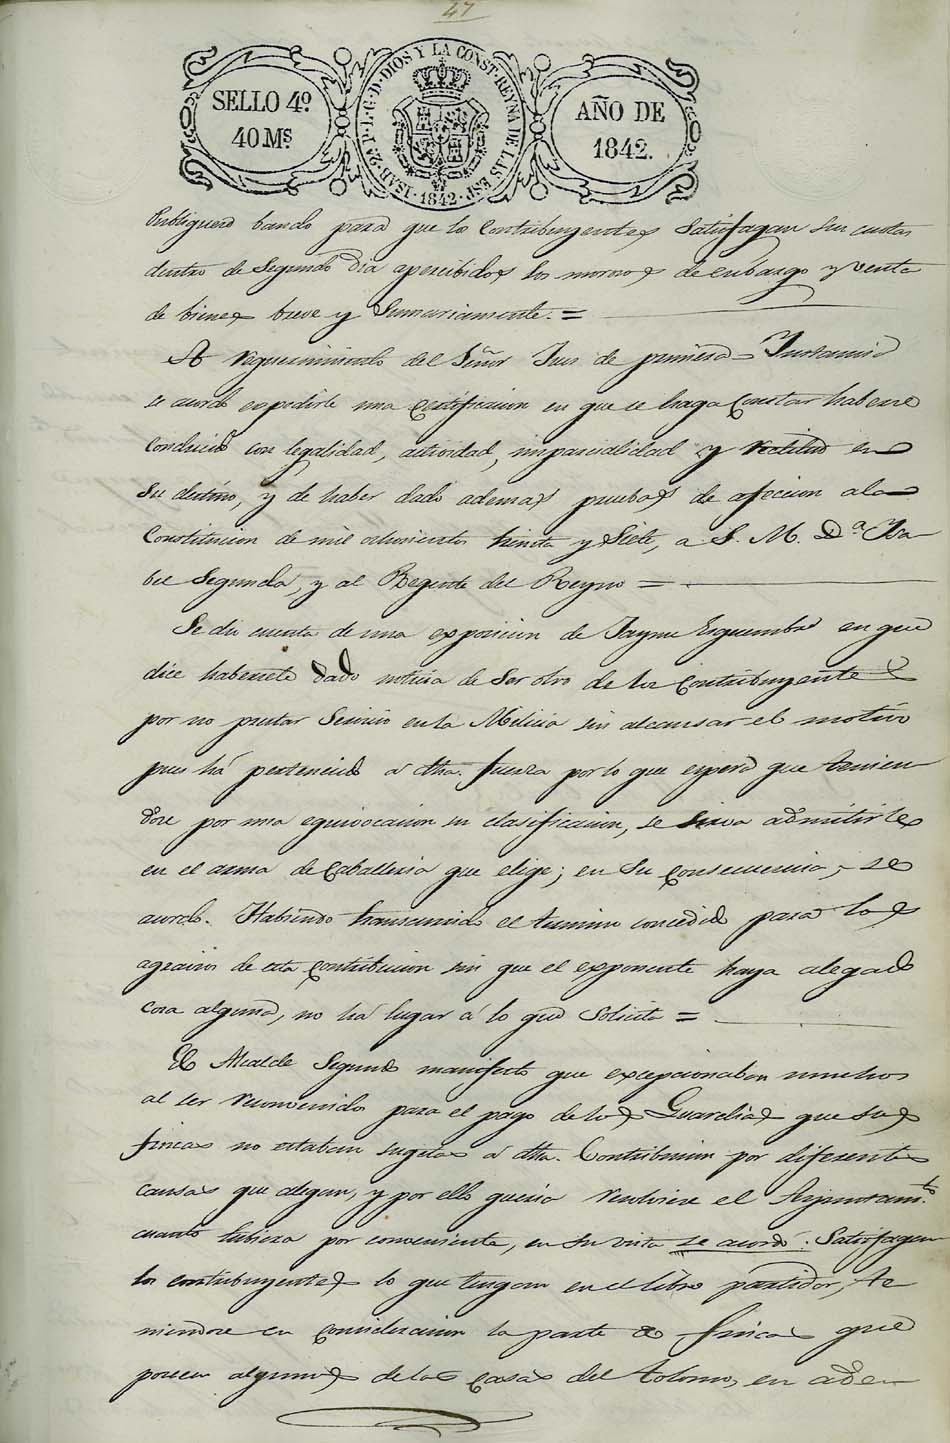 47
SELLO 4º
40 Mˢ
ISAB. 2ª P. L. G. D. DIOS Y LA CONST. REYNA DE LAS ESP.
1842
AÑO DE
1842.
Publiquese bando para que los Contribuyentes Satisfagan sus cuotas
dentro de Segundo dia apercibidos los morosos de embargo y venta
de bienes breve y Sumariamente. =
A requerimiento del Señor Jues de primera Instancia
se acordó expedirle una Certificacion en que se haga Constar haberse
Conducido con legalidad, actividad, imparcialidad y rectitud en
Su destino, y de haber dado ademas pruebas de afeccion a la
Constitucion de mil ochocientos treinta y Siete, a S. M. D.ª Isa
bel Segunda, y al Regente del Reyno =
Se dio cuenta de una exposicion de Jayme Esquembre en que
dice habersele dado noticia de Ser otro de los Contribuyentes
por no prestar Servicio en la Milicia sin alcansar el motivo
pues há pertenecido á dha. fuerza por lo que espera que tenien
dose por una equivocacion su clasificacion, se sirva admitirle
en el arma de Caballeria que elige; en Su Consecuencia, se
acordó. Habiendo transcurrido el termino concedido para los
agravios de esta Contribucion sin que el exponente haya alegado
cosa alguna, no há lugar á lo que Solicita =
El Alcalde Segundo manifestó que excepcionaban muchos
al ser reconvenidos para el pago de los Guardias que sus
fincas no estaban sugetas á dha. Contribucion por diferentes
causas que alegan, y por ello queria resolviese el Ayuntam.to
cuanto tubiera por conveniente, en su vista se acordó. Satisfagan
los contribuyentes lo que tengan en el libro partidor, te
niendose en consideracion la parte de fincas que
poseen algunos de las Casas del Colomo, en aden